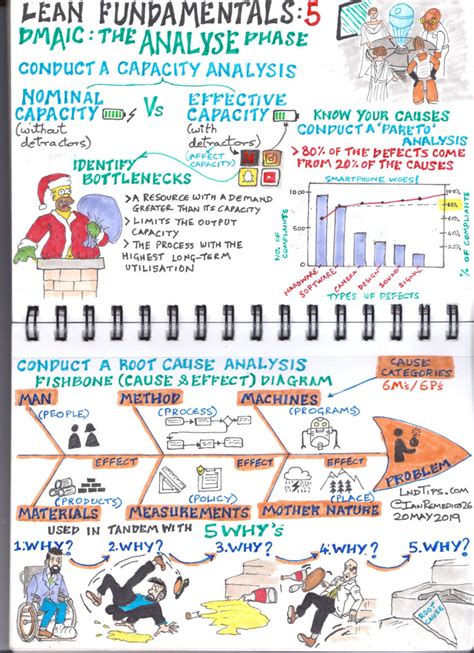 LEAN FUNDAMENTALS: 5
DMAIC: THE ANALYSE PHASE
CONDUCT A CAPACITY ANALYSIS
NOMINAL CAPACITY
(without detractors)
Vs
EFFECTIVE CAPACITY
(with detractors)
(AFFECT CAPACITY)
IDENTIFY BOTTLENECKS
> A RESOURCE WITH A DEMAND
GREATER THAN ITS CAPACITY
> LIMITS THE OUTPUT
CAPACITY
> THE PROCESS WITH THE
HIGHEST LONG-TERM
UTILISATION
KNOW YOUR CAUSES
CONDUCT A 'PARETO'
ANALYSIS
> 80% OF THE DEFECTS COME
FROM 20% OF THE CAUSES
SMARTPHONE WOES!
NO. OF COMPLAINTS
% OF COMPLAINTS
80%
HARDWARE
SOFTWARE
CAMERA
DESIGN
SOUND
SIGNAL
TYPES OF DEFECTS
CONDUCT A ROOT CAUSE ANALYSIS
FISHBONE (CAUSE & EFFECT) DIAGRAM
CAUSE
CATEGORIES
6M's/6P's
MAN
(PEOPLE)
METHOD
(PROCESS)
MACHINES
(PROGRAMS)
EFFECT
EFFECT
EFFECT
PROBLEM
(PRODUCTS)
(POLICY)
(PLACE)
MATERIALS
MEASUREMENTS
MOTHER NATURE
LndTips.com
@IanRemedios26
20 MAY 2019
USED IN TANDEM WITH 5 WHY's
1. WHY?
2. WHY?
3. WHY?
4. WHY?
5. WHY?
ROOT
CAUSE